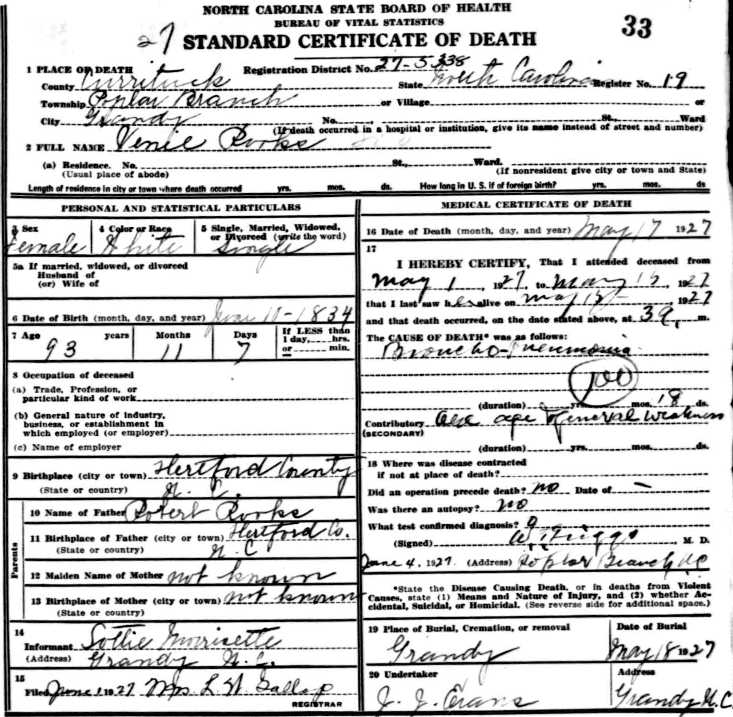 NORTH CAROLINA STATE BOARD OF HEALTH
BUREAU OF VITAL STATISTICS
27 STANDARD CERTIFICATE OF DEATH 33
1 PLACE OF DEATH Registration District No. 27-5338
County Currituck State North Carolina Register No. 19
Township Poplar Branch or Village or
City Grandy No. St., Ward
(If death occurred in a hospital or institution, give its name instead of street and number)
2 FULL NAME Venie Rooks
(a) Residence. No. St., Ward.
(Usual place of abode) (If nonresident give city or town and State)
Length of residence in city or town where death occurred yrs. mos. ds. How long in U. S. if of foreign birth? yrs. mos. ds
PERSONAL AND STATISTICAL PARTICULARS
3 Sex 4 Color or Race 5 Single, Married, Widowed,
or Divorced (write the word)
Female White Single
5a If married, widowed, or divorced
Husband of
(or) Wife of
6 Date of Birth (month, day, and year) 10-1834
7 Age years Months Days If LESS than
1 day, hrs.
or min.
93 11 7
8 Occupation of deceased
(a) Trade, Profession, or
particular kind of work
(b) General nature of industry,
business, or establishment in
which employed (or employer)
(c) Name of employer
9 Birthplace (city or town) Hertford County
(State or country) N. C.
Parents
10 Name of Father Robert Rooks
11 Birthplace of Father (city or town) Hertford Co.
(State or country) N C
12 Maiden Name of Mother not known
13 Birthplace of Mother (city or town) not known
(State or country)
14
Informant Lottie Morrisette
(Address) Grandy N. C.
15
Filed June 1, 1927 Mrs. L. W. Gallop
REGISTRAR
MEDICAL CERTIFICATE OF DEATH
16 Date of Death (month, day, and year) May 17 1927
17
I HEREBY CERTIFY, That I attended deceased from
May 1, 1927, to May 1927
that I last saw her alive on May 1927
and that death occurred, on the date stated above, at m.
The CAUSE OF DEATH* was as follows:
Broncho-Pneumonia
100
(duration) yrs. mos. 18 ds.
Contributory age & general weakness
(SECONDARY)
(duration) yrs. mos. ds.
18 Where was disease contracted
if not at place of death?
Did an operation precede death? no Date of —
Was there an autopsy? no
What test confirmed diagnosis?
(Signed) Griggs, M. D.
June 4, 1927. (Address) Poplar Branch NC
*State the Disease Causing Death, or in deaths from Violent
Causes, state (1) Means and Nature of Injury, and (2) whether Ac-
cidental, Suicidal, or Homicidal. (See reverse side for additional space.)
19 Place of Burial, Cremation, or removal Date of Burial
Grandy May 18 1927
20 Undertaker Address
J. J. Evans Grandy N.C.